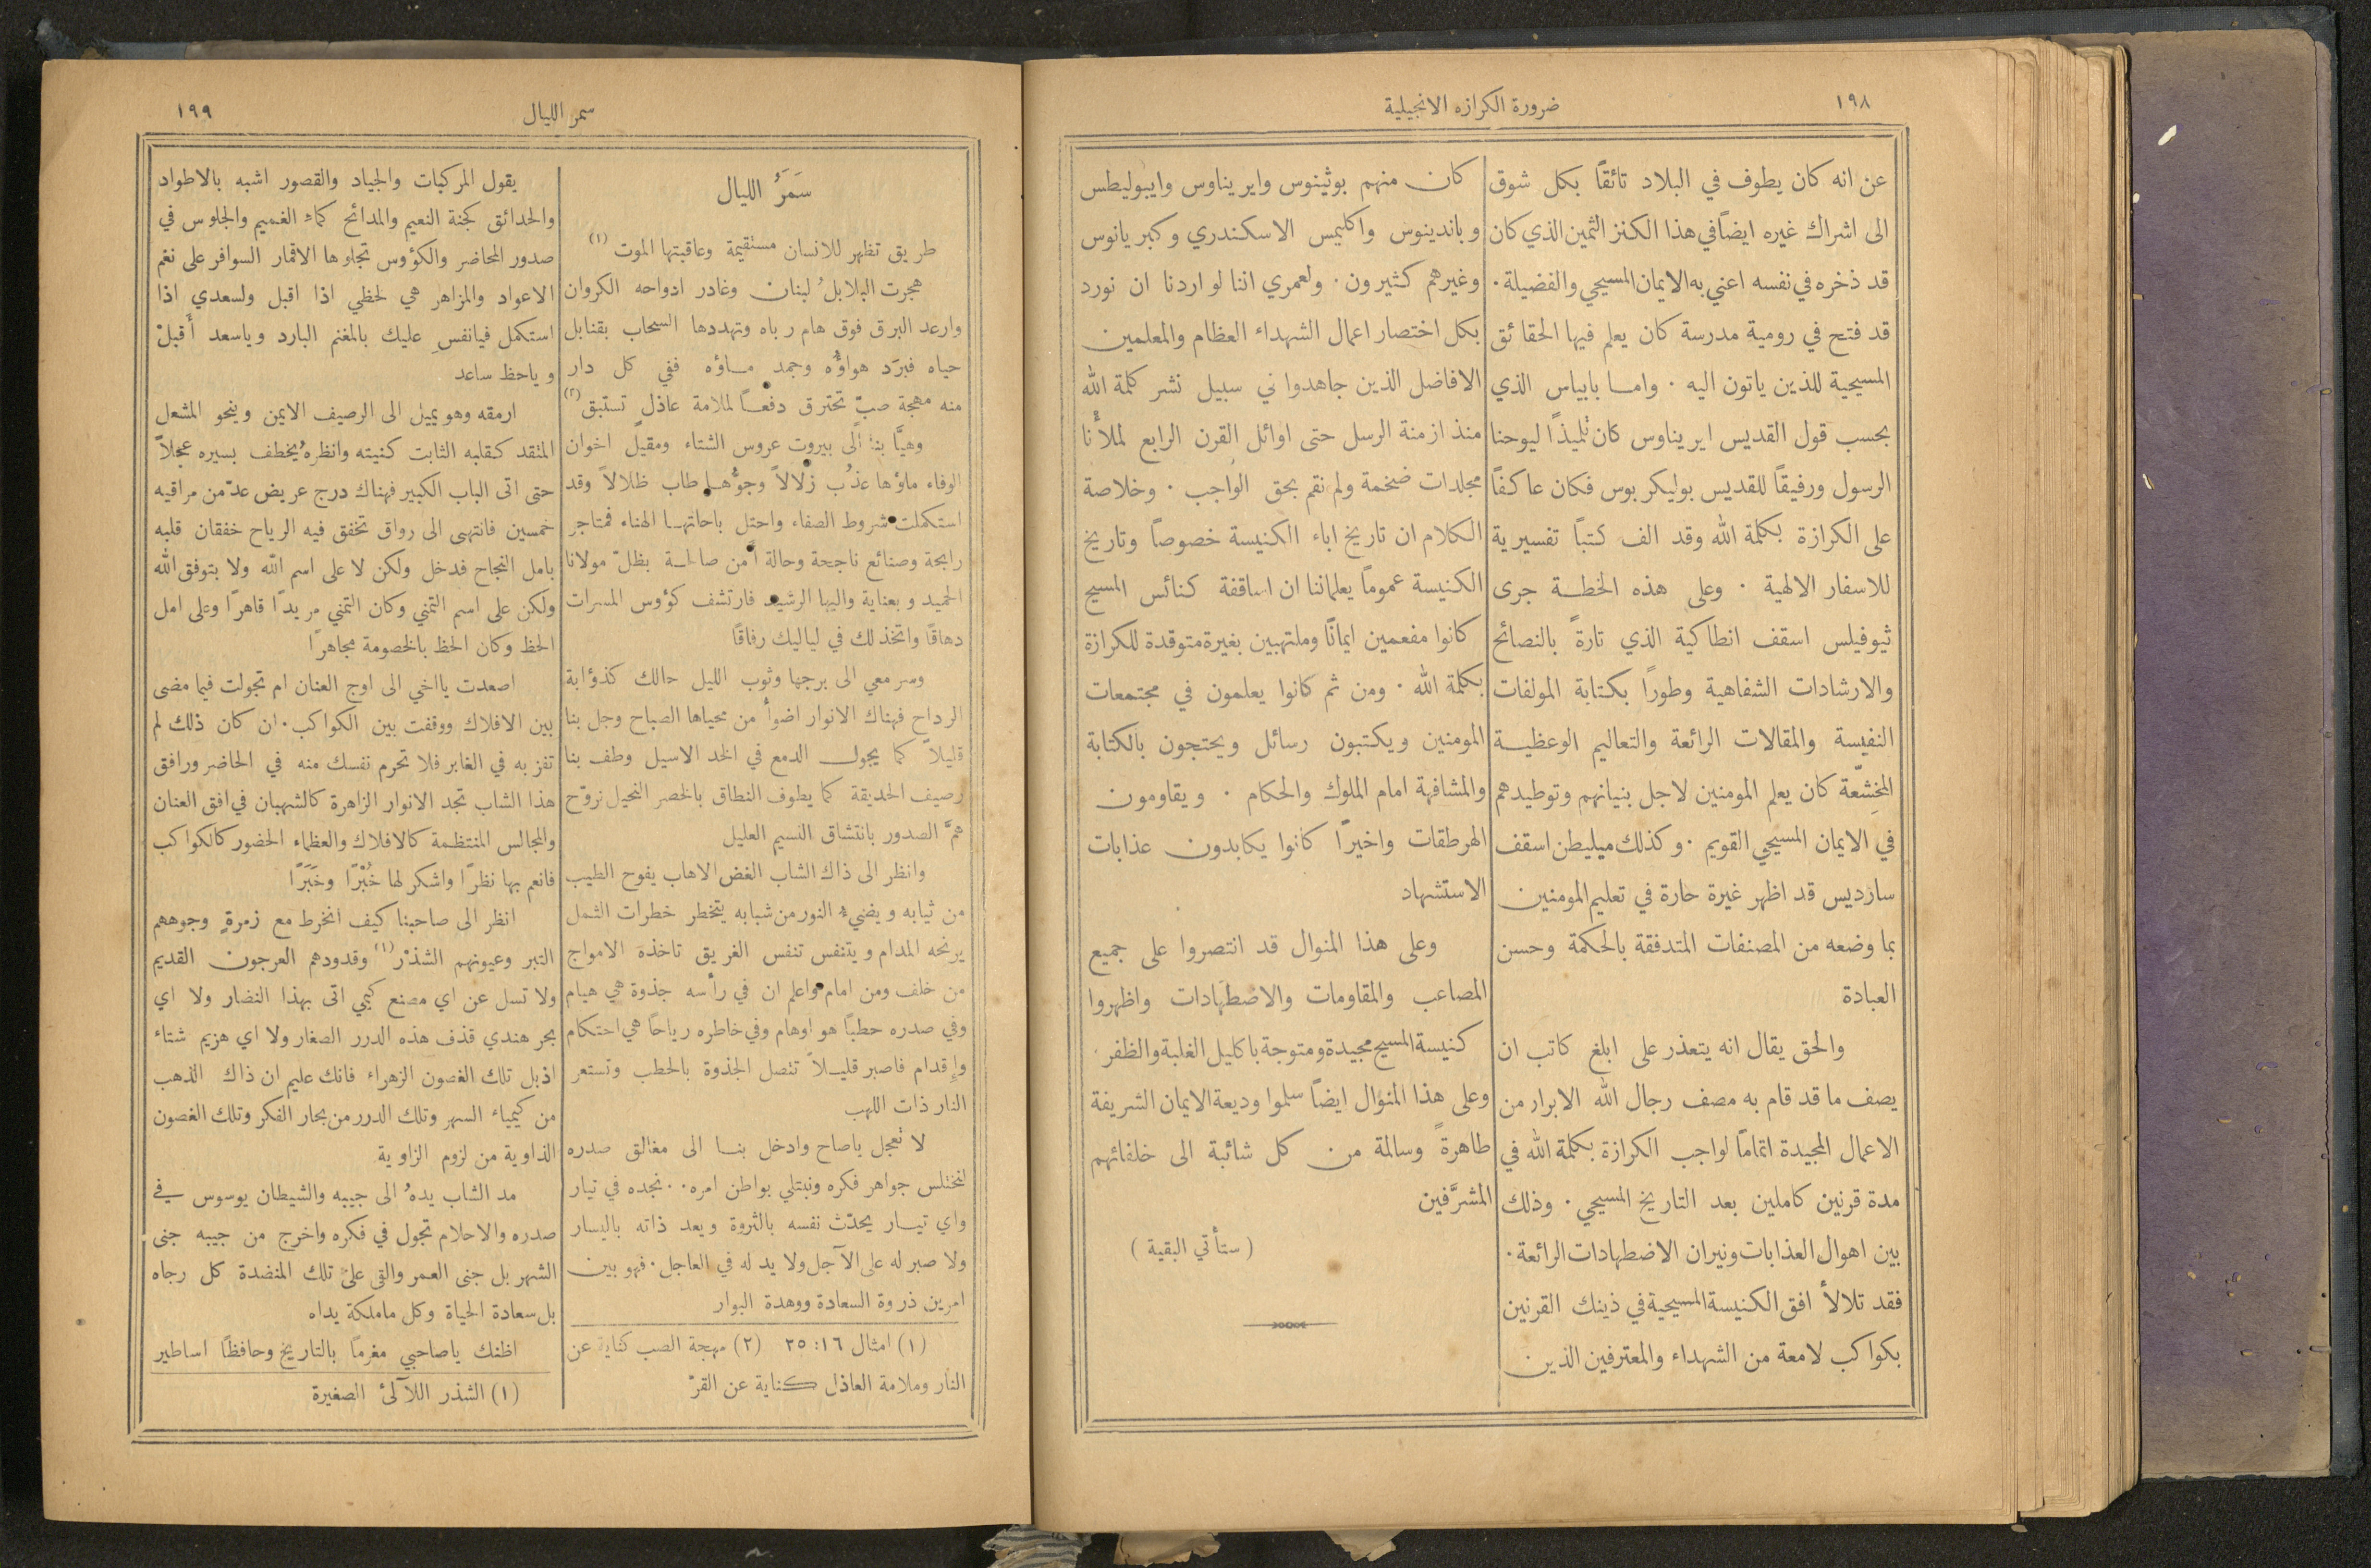 ١٩٨
ضرورة الكرازه الانجيلية
عن انه كان يطوف في البلاد تائقًا بكل شوق
الى اشراك غيره ايضًا في هذا الكنز الثمين الذي كان
قد ذخره في نفسه اعني به الايمان المسيحي والفضيلة ·
قد فتح في رومية مدرسة كان يعلم فيها الحقائق
المسيحية للذين ياتون اليه · واما بابياس الذي
بحسب قول القديس ايريناوس كان تلميذًا ليوحنا
الرسول ورفيقًا للقديس بوليكربوس فكان عاكفًا
على الكرازة بكلمة الله وقد الف كتبًا تفسيرية
للاسفار الالهية · وعلى هذه الخطة جرى
ثيوفيلس اسقف انطاكية الذي تارةً بالنصائح
والارشادات الشفاهية وطورًا بكتابة المولفات
النفيسة والمقالات الرائعة والتعاليم الوعظية
المخشِّعة كان يعلم المومنين لاجل بنيانهم وتوطيدهم
في الايمان المسيحي القويم · وكذلك ميليطن اسقف
سارديس قد اظهر غيرة حارة في تعليم المومنين
بما وضعه من المصنفات المتدفقة بالحكمة وحسن
العبادة
والحق يقال انه يتعذر على ابلغ كاتب ان
يصف ما قد قام به مصف رجال الله الابرار من
الاعمال المجيدة اتمامًا لواجب الكرازة بكلمة الله في
مدة قرنين كاملين بعد التاريخ المسيحي · وذلك
بين اهوال العذابات ونيران الاضطهادات الرائعة ·
فقد تلالأ افق الكنيسة المسيحية في ذينك القرنين
بكواكب لامعة من الشهداء والمعترفين الذين
كان منهم بوثينوس وايريناوس وايبوليطس
وباندينوس واكليمس الاسكندري وكبريانوس
وغيرهم كثيرون · ولعمري اننا لو اردنا ان نورد
بكل اختصار اعمال الشهداء العظام والمعلمين
الافاضل الذين جاهدوا في سبيل نشر كلمة الله
منذ ازمنة الرسل حتى اوائل القرن الرابع لملأنا
مجلدات ضخمة ولم نقم بحق الواجب · وخلاصة
الكلام ان تاريخ اباء الكنيسة خصوصًا وتاريخ
الكنيسة عمومًا يعلماننا ان اساقفة كنائس المسيح
كانوا مفعمين ايمانًا وملتهبين بغيرة متوقدة للكرازة
بكلمة الله · ومن ثم كانوا يعلمون في مجتمعات
المومنين ويكتبون رسائل ويحتجون بالكتابة
والمشافهة امام الملوك والحكام · ويقاومون
الهرطقات واخيرًا كانوا يكابدون عذابات
الاستشهاد
وعلى هذا المنوال قد انتصروا على جميع
المصاعب والمقاومات والاضطهادات واظهروا
كنيسة المسيح مجيدة ومتوجة باكليل الغلبة والظفر ·
وعلى هذا المنوال ايضًا سلموا وديعة الايمان الشريفة
طاهرةً وسالمة من كل شائبة الى خلفائهم
المشرَّفين
( ستأتي البقية )
سمر الليال
١٩٩
سَمَرُ الليال
طريق تظهر للانسان مستقيمة وعاقبتها الموت (١)
هجرت البلابلُ لبنان وغادر ادواحه الكروان
وارعد البرق فوق هام رباه وتهددها السحاب بقنابل
حياه فبرَد هواوُّه وجمد ماؤه ففي كل دار
منه مهجة صبّ تحترق دفعًا لملامة عاذل تستبق (٢)
وهيَّا بنا الى بيروت عروس الشتاء ومقيل اخوان
الوفاء ماؤها عذُب زلالاً وجوُّها طاب ظلالاً وقد
استكملت شروط الصفاء واحتل باحاتها الهناء فمتاجر
رابحة وصنائع ناجحة وحالة امن صالحة بظلّ مولانا
الحميد وبعناية واليها الرشيد فارتشف كؤوس المسرات
دهاقًا واتخذ لك في لياليك رفاقًا
وسر معي الى برجها وثوب الليل حالك كذؤابة
الرداح فهناك الانوار اضوأ من محياها الصباح وجل بنا
قليلاً كما يجول الدمع في الخد الاسيل وطف بنا
رصيف الحديقة كما يطوف النطاق بالخصر النحيل نروّح
همَّ الصدور بانتشاق النسيم العليل
وانظر الى ذاك الشاب الغض الاهاب يفوح الطيب
من ثيابه ويضيء النور من شبابه يتخطر خطرات الثمل
يرنحه المدام ويتنفس تنفس الغريق تاخذه الامواج
من خلف ومن امام واعلم ان في رأسه جذوة هي هيام
وفي صدره حطبًا هو اوهام وفي خاطره رياحًا هي احتكام
وإقدام فاصبر قليلاً تتصل الجذوة بالحطب وتستعر
النار ذات اللهب
لا تعجل ياصاح وادخل بنا الى مغالق صدره
لنختلس جواهر فكره ونبتلي بواطن امره · · نجده في تيار
واي تيار يحدّث نفسه بالثروة ويعد ذاته باليسار
ولا صبر له على الآجل ولا يد له في العاجل · فهو بين
امرين ذروة السعادة ووهدة البوار
(١) امثال ١٦: ٢٥ (٢) مهجة الصب كناية عن
النار وملامة العاذل كناية عن القرّ
يقول المركبات والجياد والقصور اشبه بالاطواد
والحدائق كجنة النعيم والمدائح كماء الغميم والجلوس في
صدور المحاضر والكؤوس تجلوها الاقمار السوافر على نغم
الاعواد والمزاهر هي لحظي اذا اقبل ولسعدي اذا
استكمل فيانفسِ عليك بالمغنم البارد وياسعد أَقبلْ
وياحظ ساعد
ارمقه وهو يميل الى الرصيف الايمن وينحو المشعل
المتقد كقلبه الثابت كنيته وانظرهُ يخطف بسيره عجلاً
حتى اتى الباب الكبير فهناك درج عريض عدّ من مراقيه
خمسين فانتهى الى رواق تخفق فيه الرياح خفقان قلبه
بامل النجاح فدخل ولكن لا على اسم الله ولا بتوفق الله
ولكن على اسم التمني وكان التمني مريدًا قاهرًا وعلى امل
الحظ وكان الحظ بالخصومة مجاهرًا
اصعدت يااخي الى اوج العنان ام تجولت فيما مضى
بين الافلاك ووقفت بين الكواكب · ان كان ذلك لم
تفز به في الغابر فلا تحرم نفسك منه في الحاضر ورافق
هذا الشاب تجد الانوار الزاهرة كالشهبان في افق العنان
والمجالس المنتظمة كالافلاك والعظماء الحضور كالكواكب
فانعم بها نظرًا واشكر لها خُبْرًا وخَبَرًا
انظر الى صاحبنا كيف انخرط مع زمرةٍ وجوههم
التبر وعيونهم الشذْر (١) وقدودهم العرجون القديم
ولا تسل عن اي مصنع كيمي اتى بهذا النضار ولا اي
بحر هندي قذف هذه الدرر الصغار ولا اي هزيم شتاء
اذبل تلك الغصون الزهراء فانك عليم ان ذاك الذهب
من كيمياء السهر وتلك الدرر من بحار الفكر وتلك الغصون
الذاوية من لزوم الزاوية
مد الشاب يدهُ الى جيبه والشيطان يوسوس في
صدره والاحلام تجول في فكره واخرج من جيبه جنى
الشهر بل جنى العمر والقى على تلك المنضدة كل رجاه
بل سعادة الحياة وكل ماملكة يداه
اظنك ياصاحبي مغرمًا بالتاريخ وحافظًا اساطير
(١) الشذر اللآلئ الصغيرة